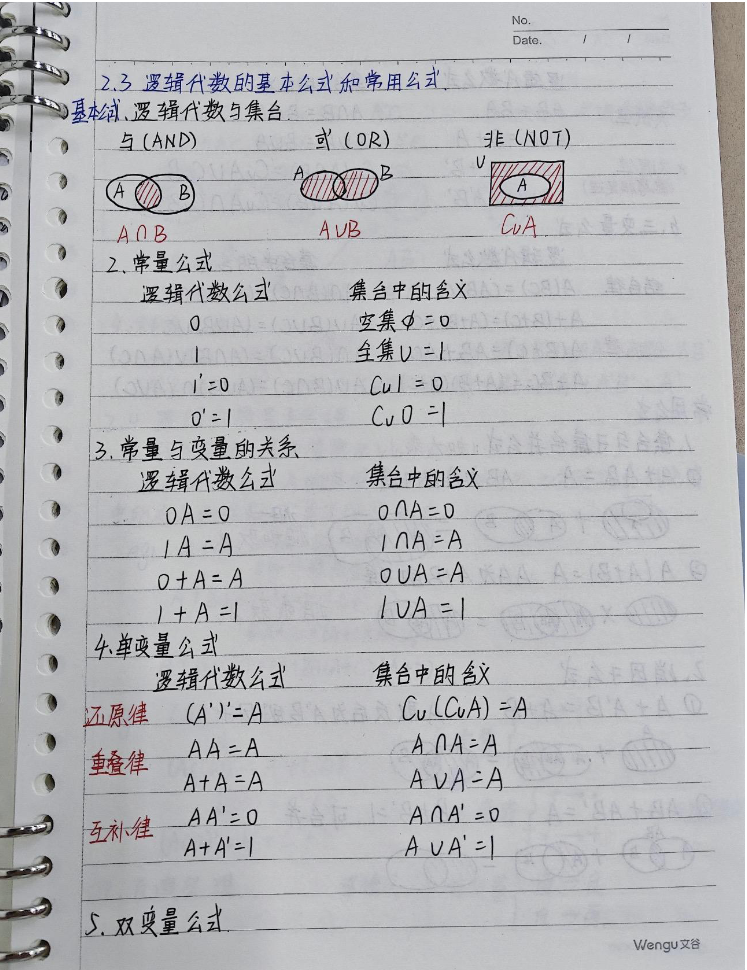 No.
Date. / /
2.3 逻辑代数的基本公式和常用公式.
基本公式. 逻辑代数与集合.
与(AND) 或(OR) 非(NOT)
A B A B U A
A∩B A∪B CuA
2. 常量公式
逻辑代数公式 集合中的含义
0 空集φ=0
1 全集U=1
1'=0 Cu1=0
0'=1 Cu0=1
3. 常量与变量的关系
逻辑代数公式 集合中的含义
0A=0 0∩A=0
1A=A 1∩A=A
0+A=A 0∪A=A
1+A=1 1∪A=1
4. 单变量公式
逻辑代数公式 集合中的含义
还原律 (A')'=A Cu(CuA)=A
重叠律 AA=A A∩A=A
A+A=A A∪A=A
互补律 AA'=0 A∩A'=0
A+A'=1 A∪A'=1
5. 双变量公式.
Wengu文谷